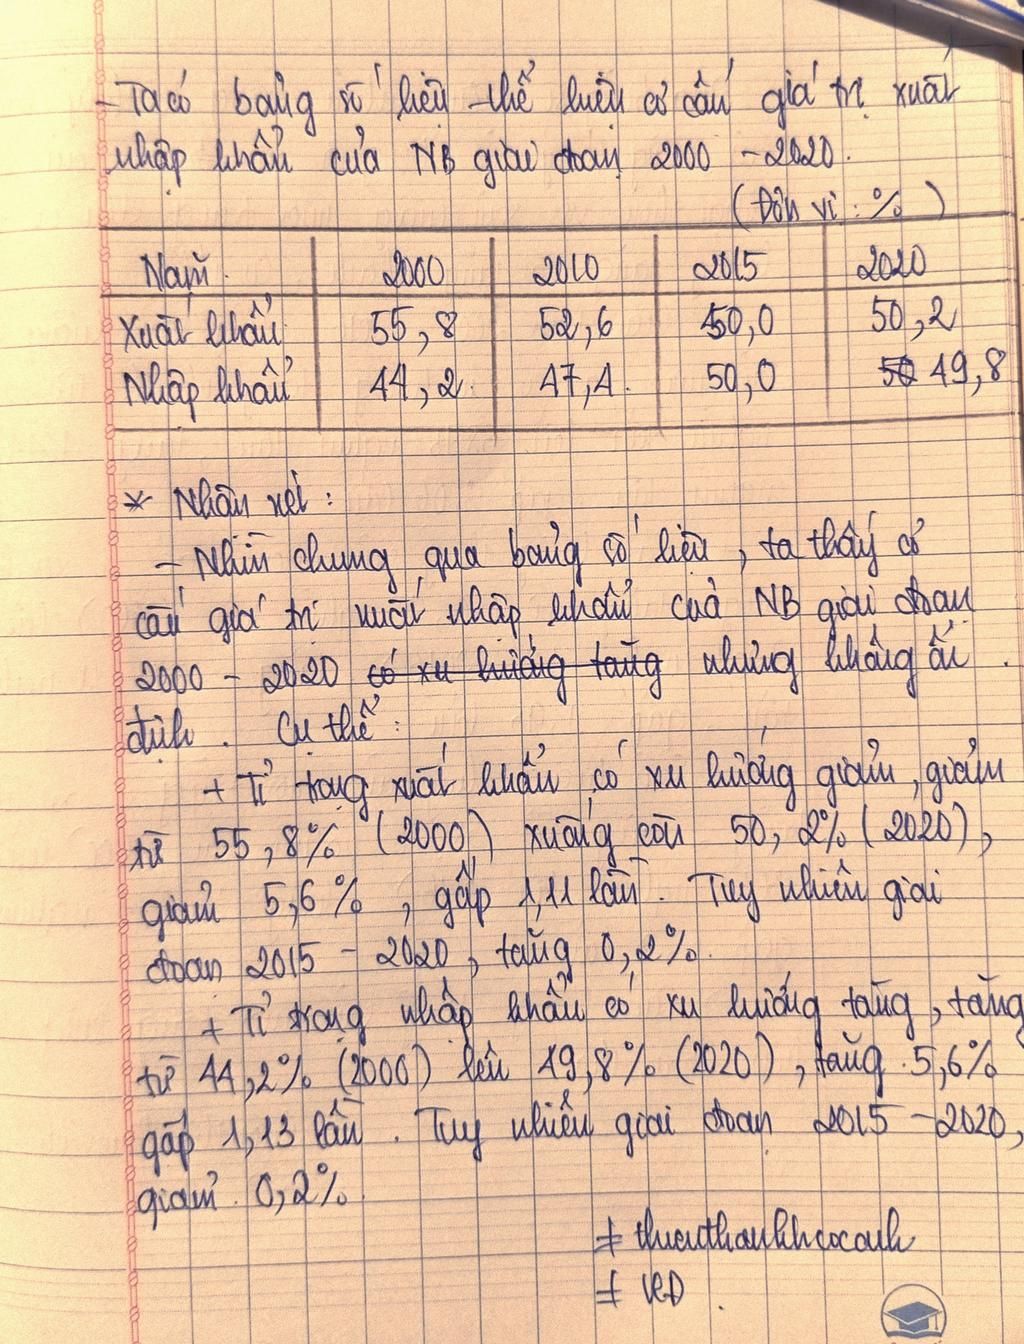 - Ta có bảng số liệu thể hiện cơ cấu giá trị xuất
nhập khẩu của NB giai đoạn 2000 - 2020.
(Đơn vị : %)
Năm 2000 2010 2015 2020
Xuất khẩu 55,8 52,6 50,0 50,2
Nhập khẩu 44,2 47,4 50,0 50 49,8
* Nhận xét :
- Nhìn chung qua bảng số liệu, ta thấy cơ
cấu giá trị xuất nhập khẩu của NB giai đoạn
2000 - 2020 có xu hướng tăng nhưng không ổn
định. Cụ thể :
+ Tỉ trọng xuất khẩu có xu hướng giảm, giảm
từ 55,8% (2000) xuống còn 50,2% (2020),
giảm 5,6%, gấp 1,11 lần. Tuy nhiên giai
đoạn 2015 - 2020, tăng 0,2%.
+ Tỉ trọng nhập khẩu có xu hướng tăng, tăng
từ 44,2% (2000) lên 49,8% (2020), tăng 5,6%
gấp 1,13 lần. Tuy nhiên giai đoạn 2015 - 2020,
giảm 0,2%